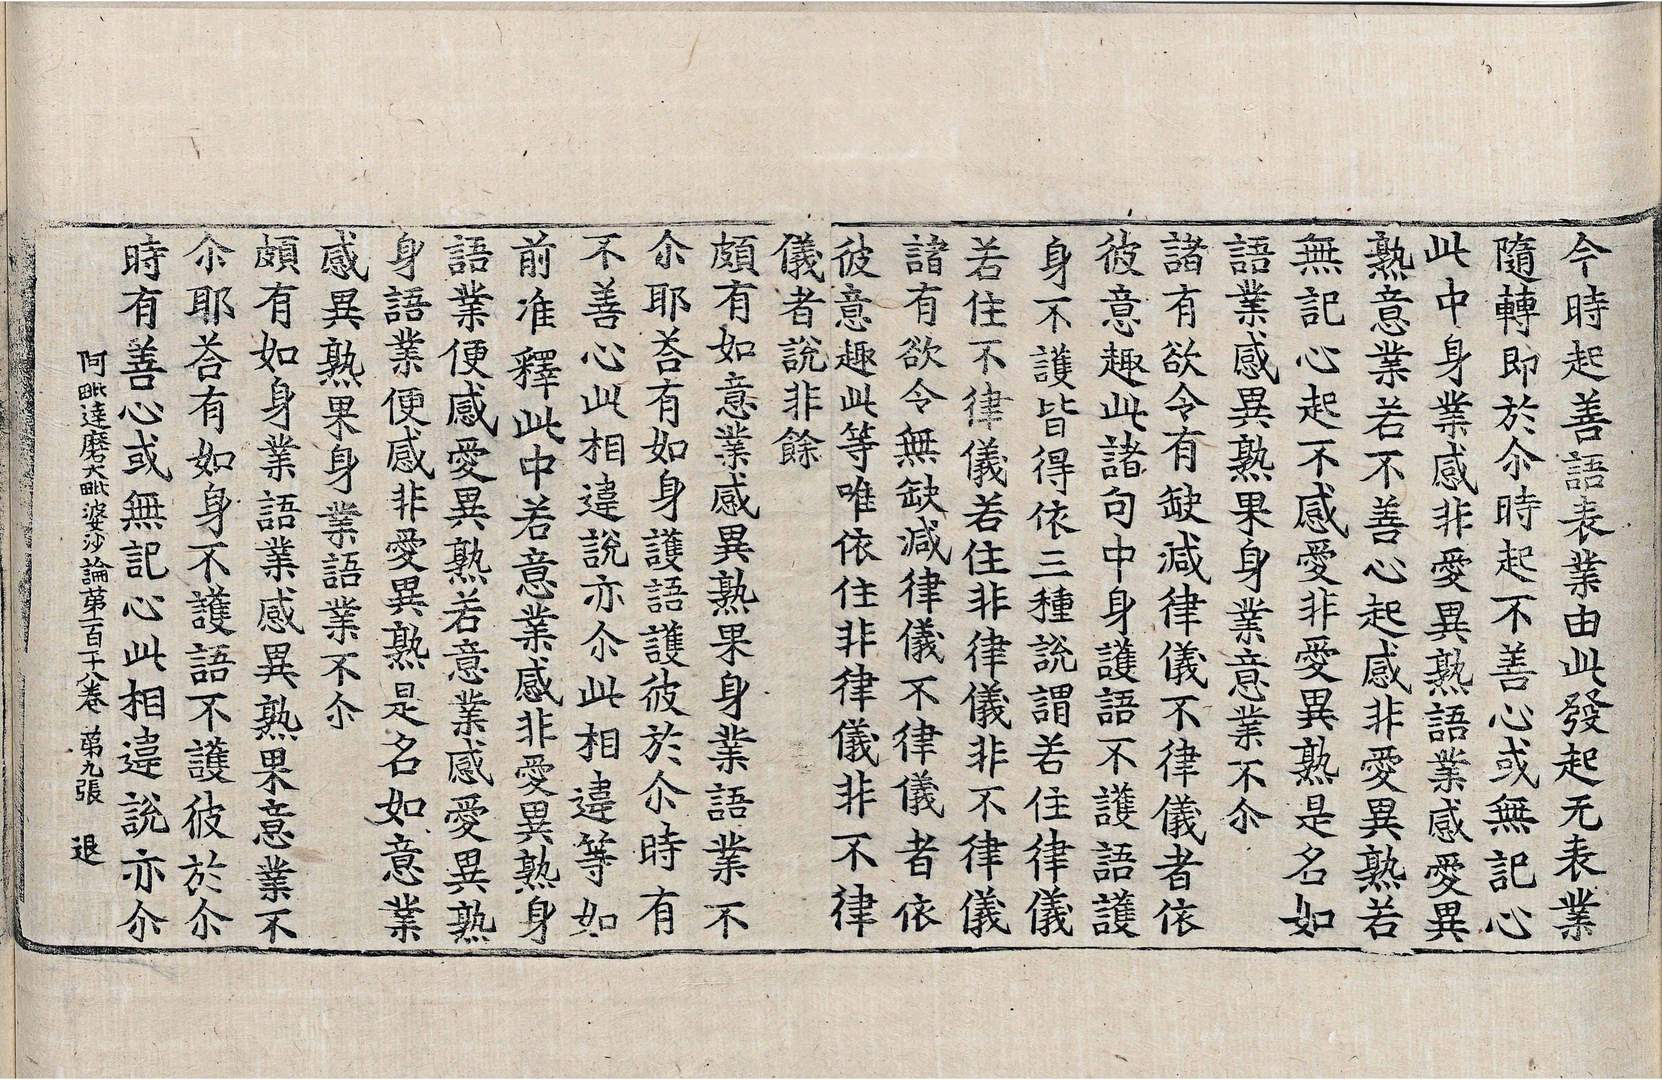 今時起善語表業由此發起无表業
隨轉即於尒時起不善心或無記心
此中身業感非愛異熟語業感愛異
熟意業若不善心起感非愛異熟若
無記心起不感愛非愛異熟是名如
語業感異熟果身業意業不尒
諸有欲令有缺減律儀不律儀者依
彼意趣此諸句中身護語不護語護
身不護皆得依三種說謂若住律儀
若住不律儀若住非律儀非不律儀
諸有欲令無缺減律儀不律儀者依
彼意趣此等唯依住非律儀非不律
儀者說非餘
頗有如意業感異熟果身業語業不
尒耶荅有如身護語護彼於尒時有
不善心此相違說亦尒此相違等如
前准釋此中若意業感非愛異熟身
語業便感愛異熟若意業感愛異熟
身語業便感非愛異熟是名如意業
感異熟果身業語業不尒
頗有如身業語業感異熟果意業不
尒耶荅有如身不護語不護彼於尒
時有善心或無記心此相違說亦尒
阿毗達磨大毗婆沙論第一百十八卷 第九張 退